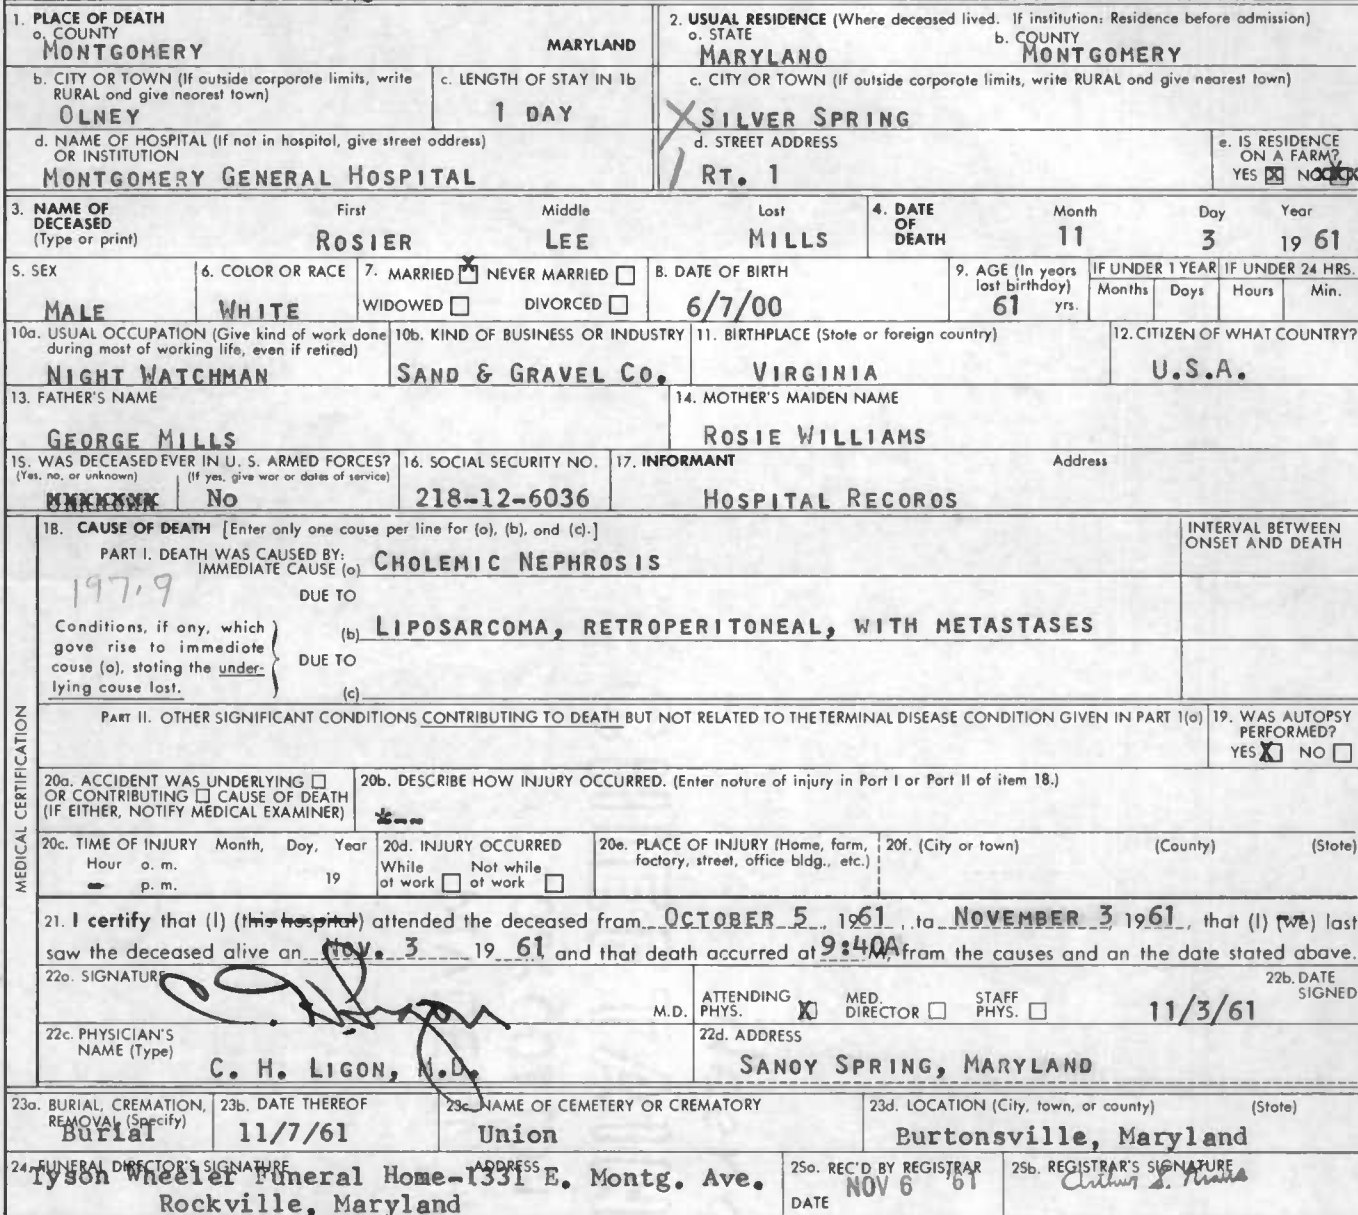 1. PLACE OF DEATH
a. COUNTY
MONTGOMERY MARYLAND
2. USUAL RESIDENCE (Where deceased lived. If institution: Residence before admission)
a. STATE b. COUNTY
MARYLAND MONTGOMERY
b. CITY OR TOWN (If outside corporate limits, write RURAL and give nearest town)
OLNEY
c. LENGTH OF STAY IN 1b
1 DAY
c. CITY OR TOWN (If outside corporate limits, write RURAL and give nearest town)
SILVER SPRING
d. NAME OF HOSPITAL (If not in hospital, give street address)
OR INSTITUTION
MONTGOMERY GENERAL HOSPITAL
d. STREET ADDRESS
RT. 1
e. IS RESIDENCE
ON A FARM?
YES NO
3. NAME OF
DECEASED
(Type or print)
First Middle Last
ROSIER LEE MILLS
4. DATE
OF
DEATH
Month Day Year
11 3 19 61
5. SEX
MALE
6. COLOR OR RACE
WHITE
7. MARRIED X NEVER MARRIED
WIDOWED DIVORCED
8. DATE OF BIRTH
6/7/00
9. AGE (In years
last birthday)
61 yrs.
IF UNDER 1 YEAR IF UNDER 24 HRS.
Months Days Hours Min.
10a. USUAL OCCUPATION (Give kind of work done
during most of working life, even if retired)
NIGHT WATCHMAN
10b. KIND OF BUSINESS OR INDUSTRY
SAND & GRAVEL CO.
11. BIRTHPLACE (State or foreign country)
VIRGINIA
12. CITIZEN OF WHAT COUNTRY?
U.S.A.
13. FATHER'S NAME
GEORGE MILLS
14. MOTHER'S MAIDEN NAME
ROSIE WILLIAMS
15. WAS DECEASED EVER IN U. S. ARMED FORCES?
(Yes, no, or unknown) (If yes, give war or dates of service)
UNKNOWN NO
16. SOCIAL SECURITY NO.
218-12-6036
17. INFORMANT Address
HOSPITAL RECORDS
18. CAUSE OF DEATH [Enter only one cause per line for (a), (b), and (c).]
INTERVAL BETWEEN
ONSET AND DEATH
PART I. DEATH WAS CAUSED BY:
IMMEDIATE CAUSE (a) CHOLEMIC NEPHROSIS
197.9
DUE TO
Conditions, if any, which
gave rise to immediate
cause (a), stating the under-
lying cause last.
(b) LIPOSARCOMA, RETROPERITONEAL, WITH METASTASES
DUE TO
(c)
MEDICAL CERTIFICATION
PART II. OTHER SIGNIFICANT CONDITIONS CONTRIBUTING TO DEATH BUT NOT RELATED TO THE TERMINAL DISEASE CONDITION GIVEN IN PART 1(a)
19. WAS AUTOPSY
PERFORMED?
YES X NO
20a. ACCIDENT WAS UNDERLYING
OR CONTRIBUTING CAUSE OF DEATH
(IF EITHER, NOTIFY MEDICAL EXAMINER)
20b. DESCRIBE HOW INJURY OCCURRED. (Enter nature of injury in Part I or Part II of item 18.)
20c. TIME OF INJURY Month, Day, Year
Hour a. m.
p. m. 19
20d. INJURY OCCURRED
While Not while
at work at work
20e. PLACE OF INJURY (Home, farm,
factory, street, office bldg., etc.)
20f. (City or town) (County) (State)
21. I certify that (I) (this hospital) attended the deceased from OCTOBER 5, 1961, to NOVEMBER 3, 1961, that (I) (we) last
saw the deceased alive on NOV. 3 19 61, and that death occurred at 9:40A M, from the causes and on the date stated above.
22a. SIGNATURE
M.D.
ATTENDING
PHYS. X
MED.
DIRECTOR
STAFF
PHYS.
22b. DATE
SIGNED
11/3/61
22c. PHYSICIAN'S
NAME (Type)
C. H. LIGON, M.D.
22d. ADDRESS
SANDY SPRING, MARYLAND
23a. BURIAL, CREMATION,
REMOVAL (Specify)
Burial
23b. DATE THEREOF
11/7/61
23c. NAME OF CEMETERY OR CREMATORY
Union
23d. LOCATION (City, town, or county) (State)
Burtonsville, Maryland
24. FUNERAL DIRECTOR'S SIGNATURE ADDRESS
Tyson Wheeler Funeral Home-1331 E. Montg. Ave.
Rockville, Maryland
25a. REC'D BY REGISTRAR
DATE NOV 6 '61
25b. REGISTRAR'S SIGNATURE